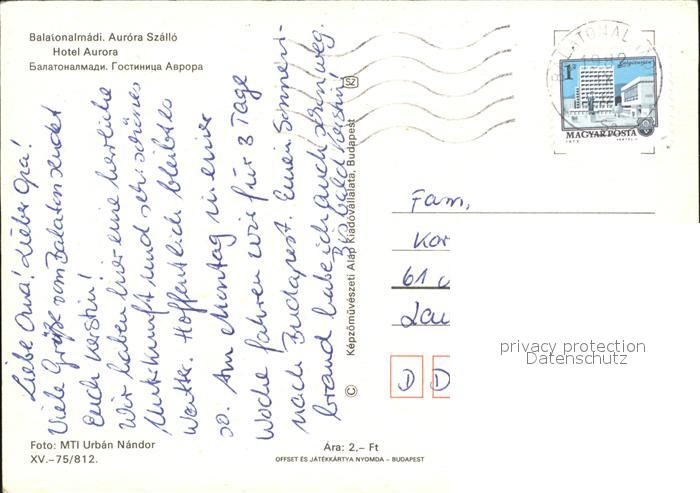 Balatonalmádi. Auróra Szálló
Hotel Aurora
Балатоналмади. Гостиница Аврора
Liebe Oma! Lieber Opa!
Viele Grüße vom Balaton sendet
Euch Kerstin!
Wir haben hier eine herrliche
Unterkunft und sehr schönes
Wetter. Hoffentlich bleibt es
so. Am Montag in einer
Woche fahren wir für 3 Tage
nach Budapest. Einen Sonnen-
brand habe ich auch schon weg.
Bis bald Kerstin!
Foto: MTI Urbán Nándor
XV.–75/812.
Ára: 2,– Ft
OFFSET ÉS JÁTÉKKÁRTYA NYOMDA – BUDAPEST
© Képzőművészeti Alap Kiadóvállalata, Budapest
SZ
BALATONAL
1Ft
MAGYAR POSTA
1973
Fam.
Kor
61
Lau
D D
privacy protection
Datenschutz